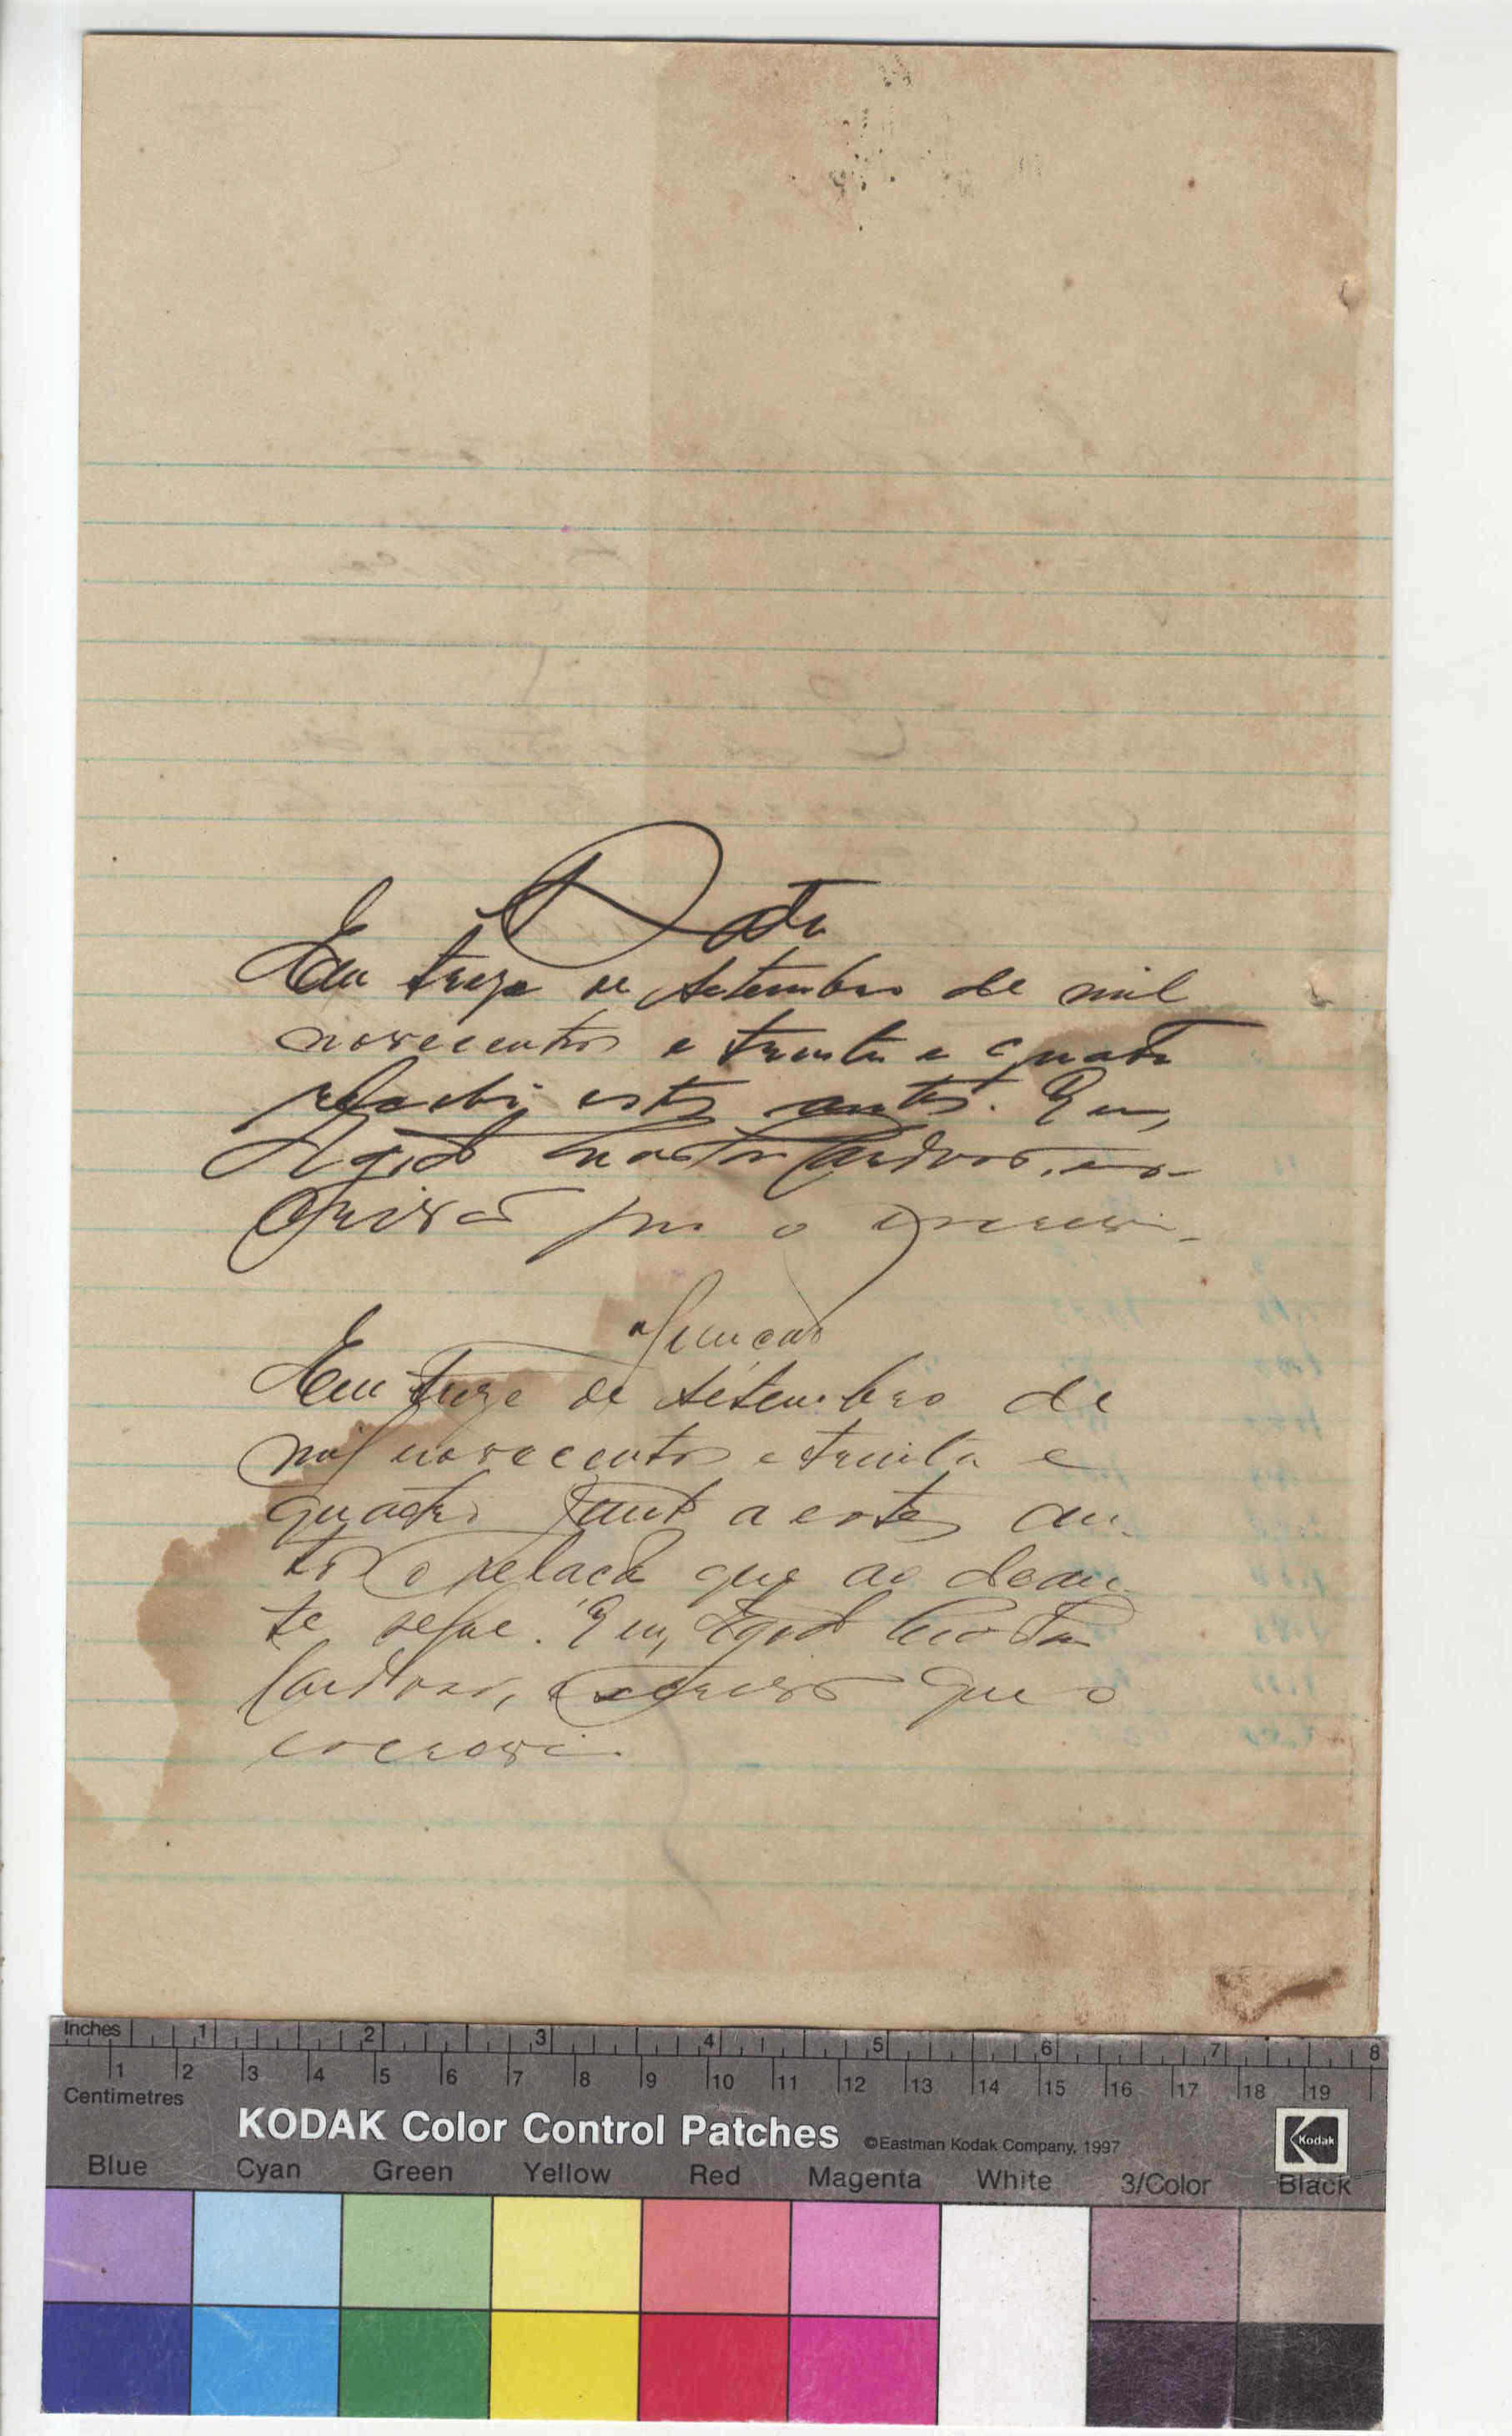 Data
Em treze de setembro de mil
novecentos e trinta e quatro
recebi estes autos. Eu,
Egidio Costa Cardoso, es-
crivão que o escrevi.
Juncao
Em treze de setembro de
mil novecentos e trinta e
quatro junto a estes au-
tos o relacao que ao dean-
te segue. Eu, Egidio Costa
Cardoso, escrivão que o
escrevi.
Inches 1 2 3 4 5 6 7 8
1 2 3 4 5 6 7 8 9 10 11 12 13 14 15 16 17 18 19
Centimetres
KODAK Color Control Patches ©Eastman Kodak Company, 1997 Kodak
Blue Cyan Green Yellow Red Magenta White 3/Color Black